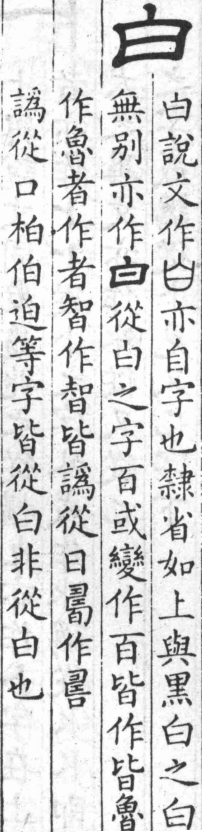 白
白說文作𦣹亦自字也隸省如上與黑白之白
無別亦作白從白之字百或變作百皆作皆魯
作魯者作者智作智皆譌從日作
譌從口柏伯迫等字皆從白非從白也